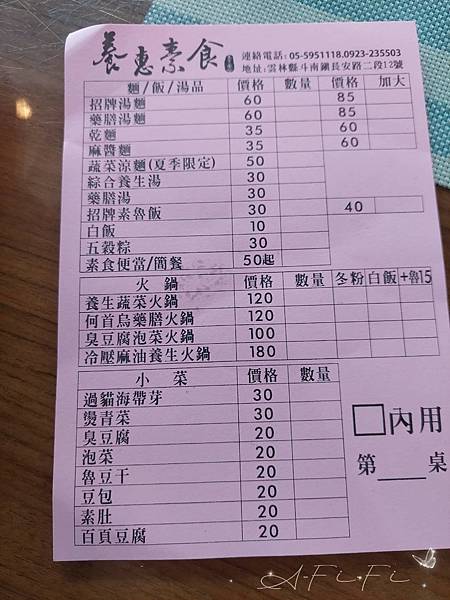 養惠素食
連絡電話:05-5951118.0923-235503
地址:雲林縣斗南鎮長安路二段12號
麵/飯/湯品 價格 數量 價格 加大
招牌湯麵 60 85
藥膳湯麵 60 85
乾麵 35 60
麻醬麵 35 60
蔬菜涼麵(夏季限定) 50
綜合養生湯 30
藥膳湯 30
招牌素魯飯 30 40
白飯 10
五穀粽 30
素食便當/簡餐 50起
火鍋 價格 數量 冬粉 白飯 +魯15
養生蔬菜火鍋 120
何首烏藥膳火鍋 120
臭豆腐泡菜火鍋 100
冷壓麻油養生火鍋 180
小菜 價格 數量
過貓海帶芽 30
燙青菜 30
臭豆腐 20
泡菜 20
魯豆干 20
豆包 20
素肚 20
百頁豆腐 20
□內用
第___桌
A-FiFi